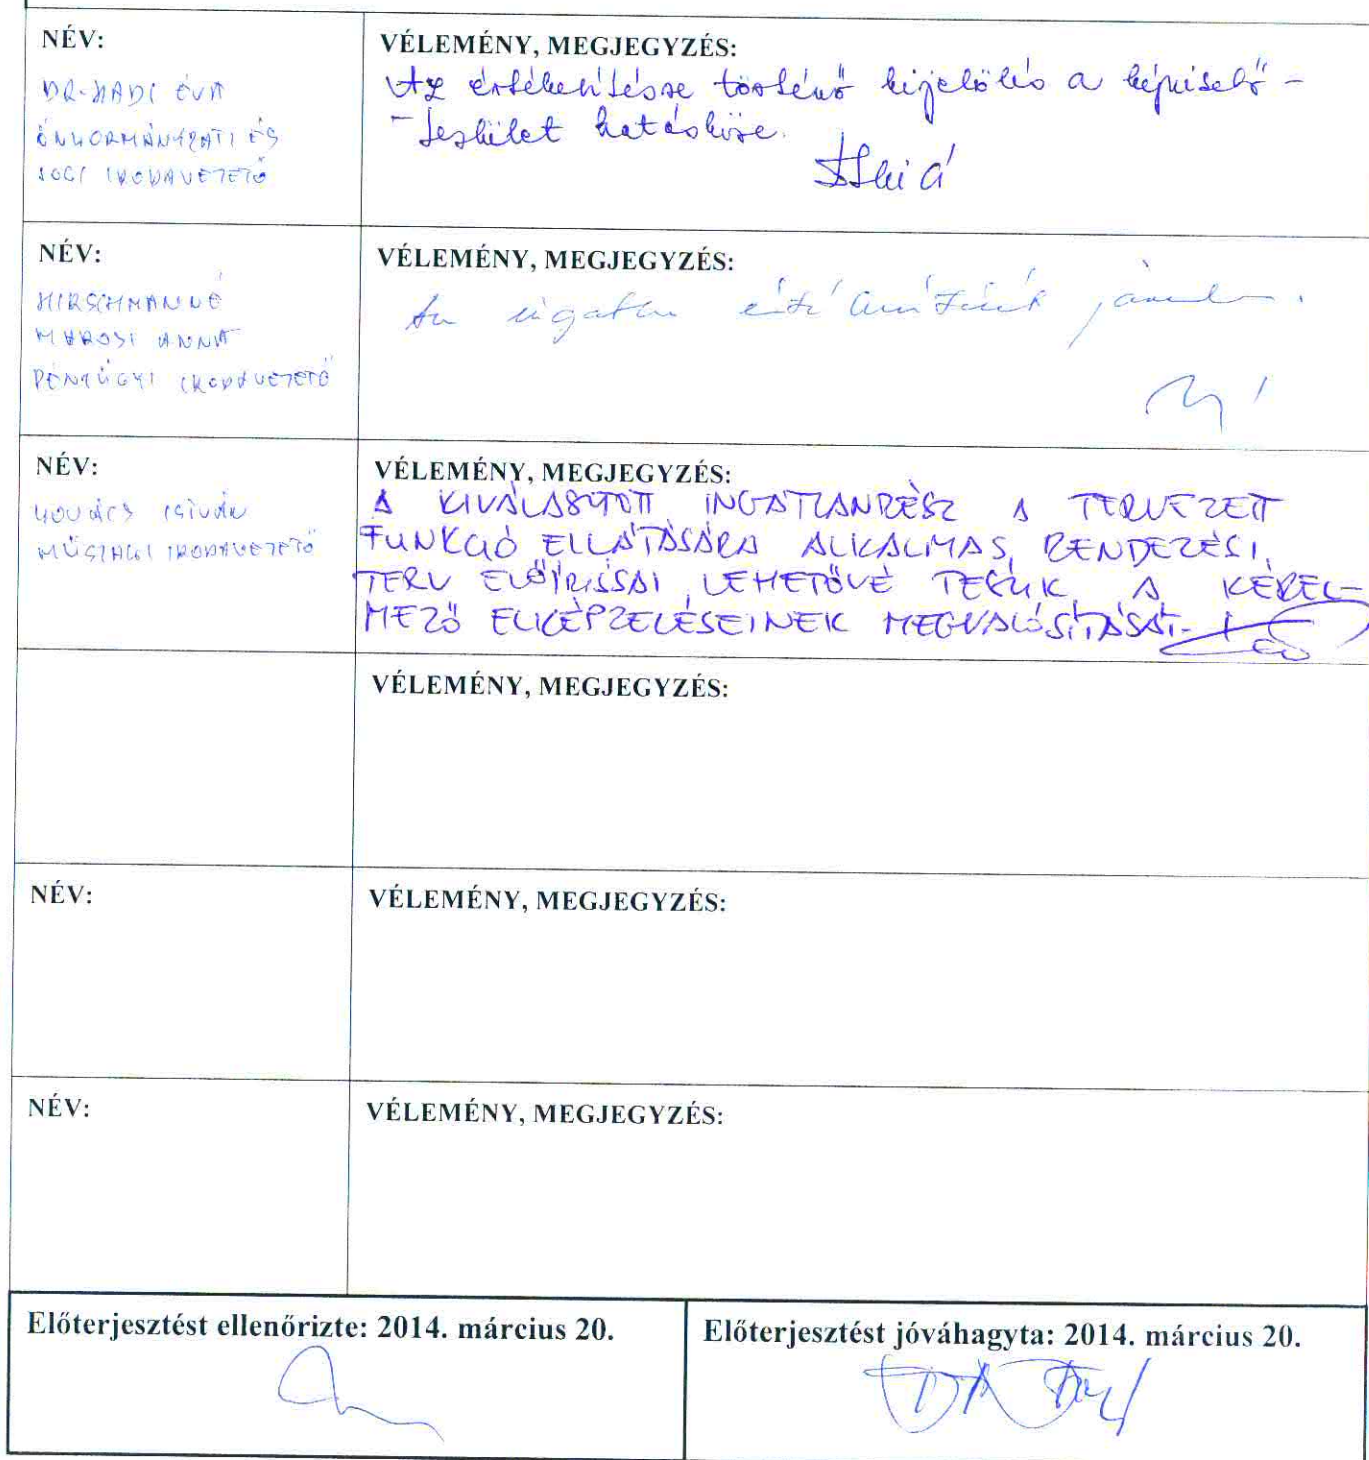 NÉV:
DR. HADI ÉVA
ÖNKORMÁNYZATI ÉS
JOGI IRODAVEZETŐ
VÉLEMÉNY, MEGJEGYZÉS:
Az értékesítésre történő kijelölés a képviselő-
-testület hatásköre.
NÉV:
HIRSCHMANNÉ
MAROSI ANNA
PÉNZÜGYI IRODAVEZETŐ
VÉLEMÉNY, MEGJEGYZÉS:
Az ingatlan
NÉV:
KOVÁCS ISTVÁN
MŰSZAKI IRODAVEZETŐ
VÉLEMÉNY, MEGJEGYZÉS:
A KIVÁLASZTOTT INGATLANRÉSZ A TERVEZETT
FUNKCIÓ ELLÁTÁSÁRA ALKALMAS, RENDEZÉSI
TERV ELŐÍRÁSAI LEHETŐVÉ TESZIK A KÉREL-
MEZŐ ELKÉPZELÉSEINEK MEGVALÓSÍTÁSÁT.
VÉLEMÉNY, MEGJEGYZÉS:
NÉV:
VÉLEMÉNY, MEGJEGYZÉS:
NÉV:
VÉLEMÉNY, MEGJEGYZÉS:
Előterjesztést ellenőrizte: 2014. március 20.
Előterjesztést jóváhagyta: 2014. március 20.